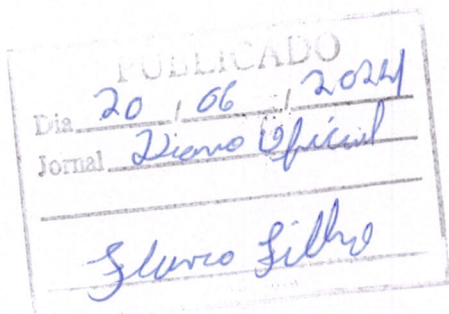 PUBLICADO
Dia 20 / 06 / 2024
Jornal Diario Oficial
Flavio Filho